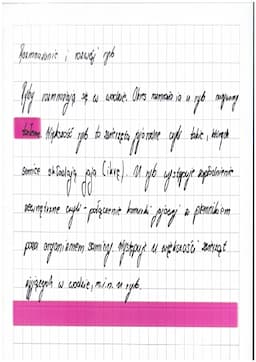 Rozmnażanie i rozwój ryb
Ryby rozmnażają się w wodzie. Okres rozmnażania u ryb nazywamy
tarłem. Większość ryb to zwierzęta jajorodne czyli takie, których
samice składają jaja (ikrę). U ryb występuje zapłodnienie
zewnętrzne czyli - połączenie komórki jajowej z plemnikiem
poza organizmem samicy. Występuje u większości zwierząt
żyjących w wodzie, m.in. u ryb.